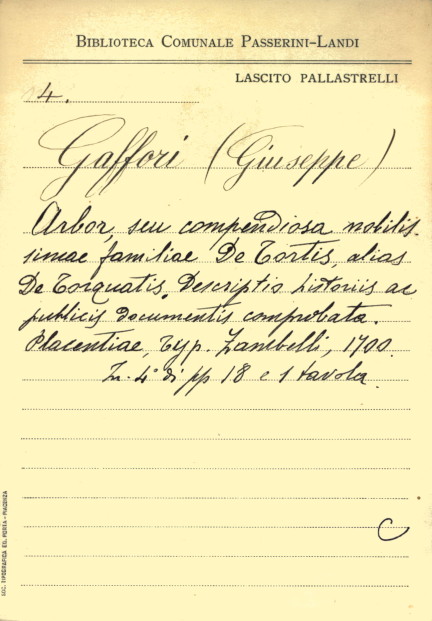 BIBLIOTECA COMUNALE PASSERINI-LANDI
LASCITO PALLASTRELLI
4.
Gaffori (Giuseppe)
Arbor, seu compendiosa nobilis-
simae familiae De Tortis, alias
De Torquatis, Descriptio historiis ac
publicis documentis comprobata.
Placentiae, Typ. Zambelli, 1700
In 4° di pp 18 e 1 tavola.
C
SOC. TIPOGRAFICA ED. PORTA - PIACENZA